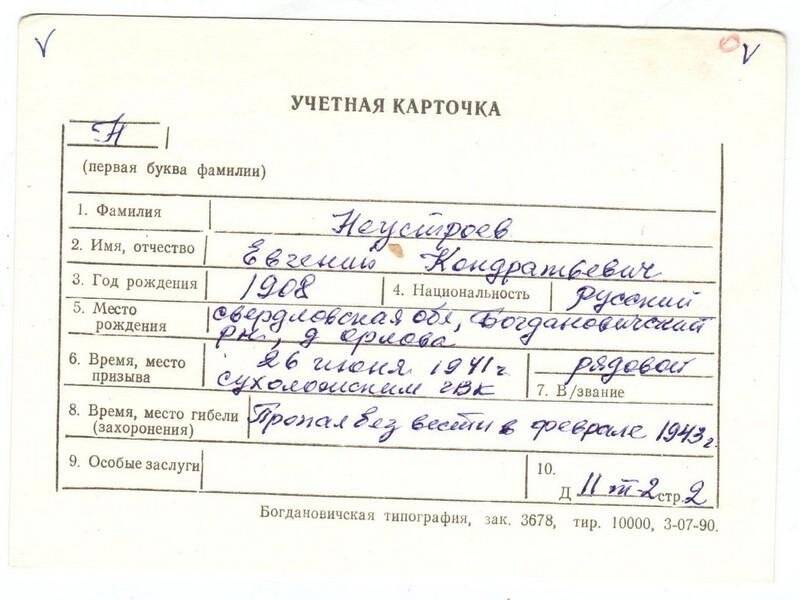 УЧЕТНАЯ КАРТОЧКА
Н
(первая буква фамилии)
1. Фамилия Неустроев
2. Имя, отчество Евгений Кондратьевич
3. Год рождения 1908 4. Национальность русский
5. Место рождения свердловская обл, Богдановичский
р-н, д орлова
6. Время, место призыва 26 июня 1941 г
сухоложским гвк
рядовой
7. В/звание
8. Время, место гибели (захоронения) Пропал без вести в феврале 1943 г.
9. Особые заслуги
10.
Д 11 т-2 стр. 2
Богдановичская типография, зак. 3678, тир. 10000, 3-07-90.